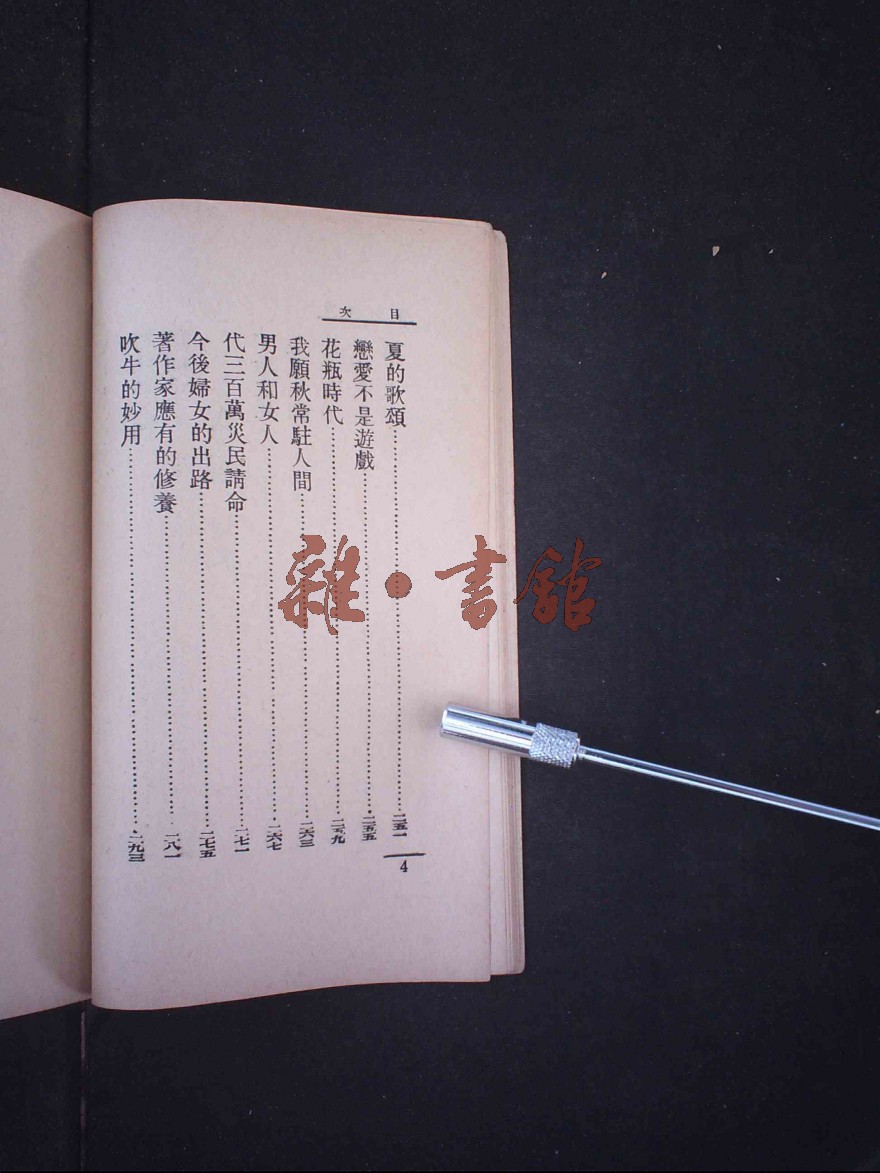 目次
夏的歌頌 二五一
戀愛不是遊戲 二五五
花瓶時代 二五九
我願秋常駐人間 二六三
男人和女人 二六七
代三百萬災民請命 二七一
今後婦女的出路 二七五
著作家應有的修養 二八一
吹牛的妙用 二九三
4
雜·書館